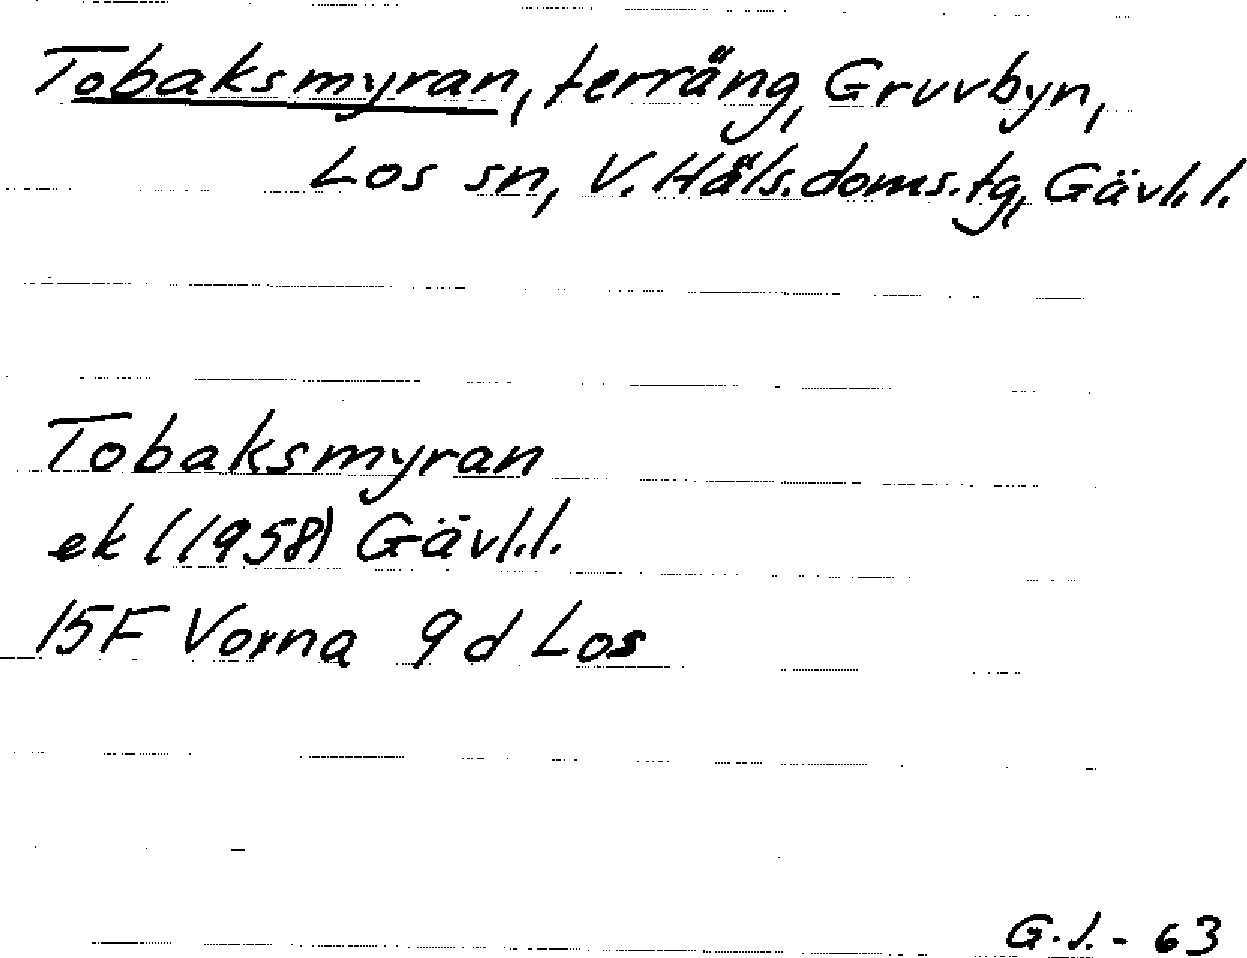 Tobaksmyran, terräng, Gruvbyn,
Los sn, V. Häls. doms. tg, Gävl. l.
Tobaksmyran
ek (1958) Gävl. l.
15F Vorna 9d Los
G.J. - 63